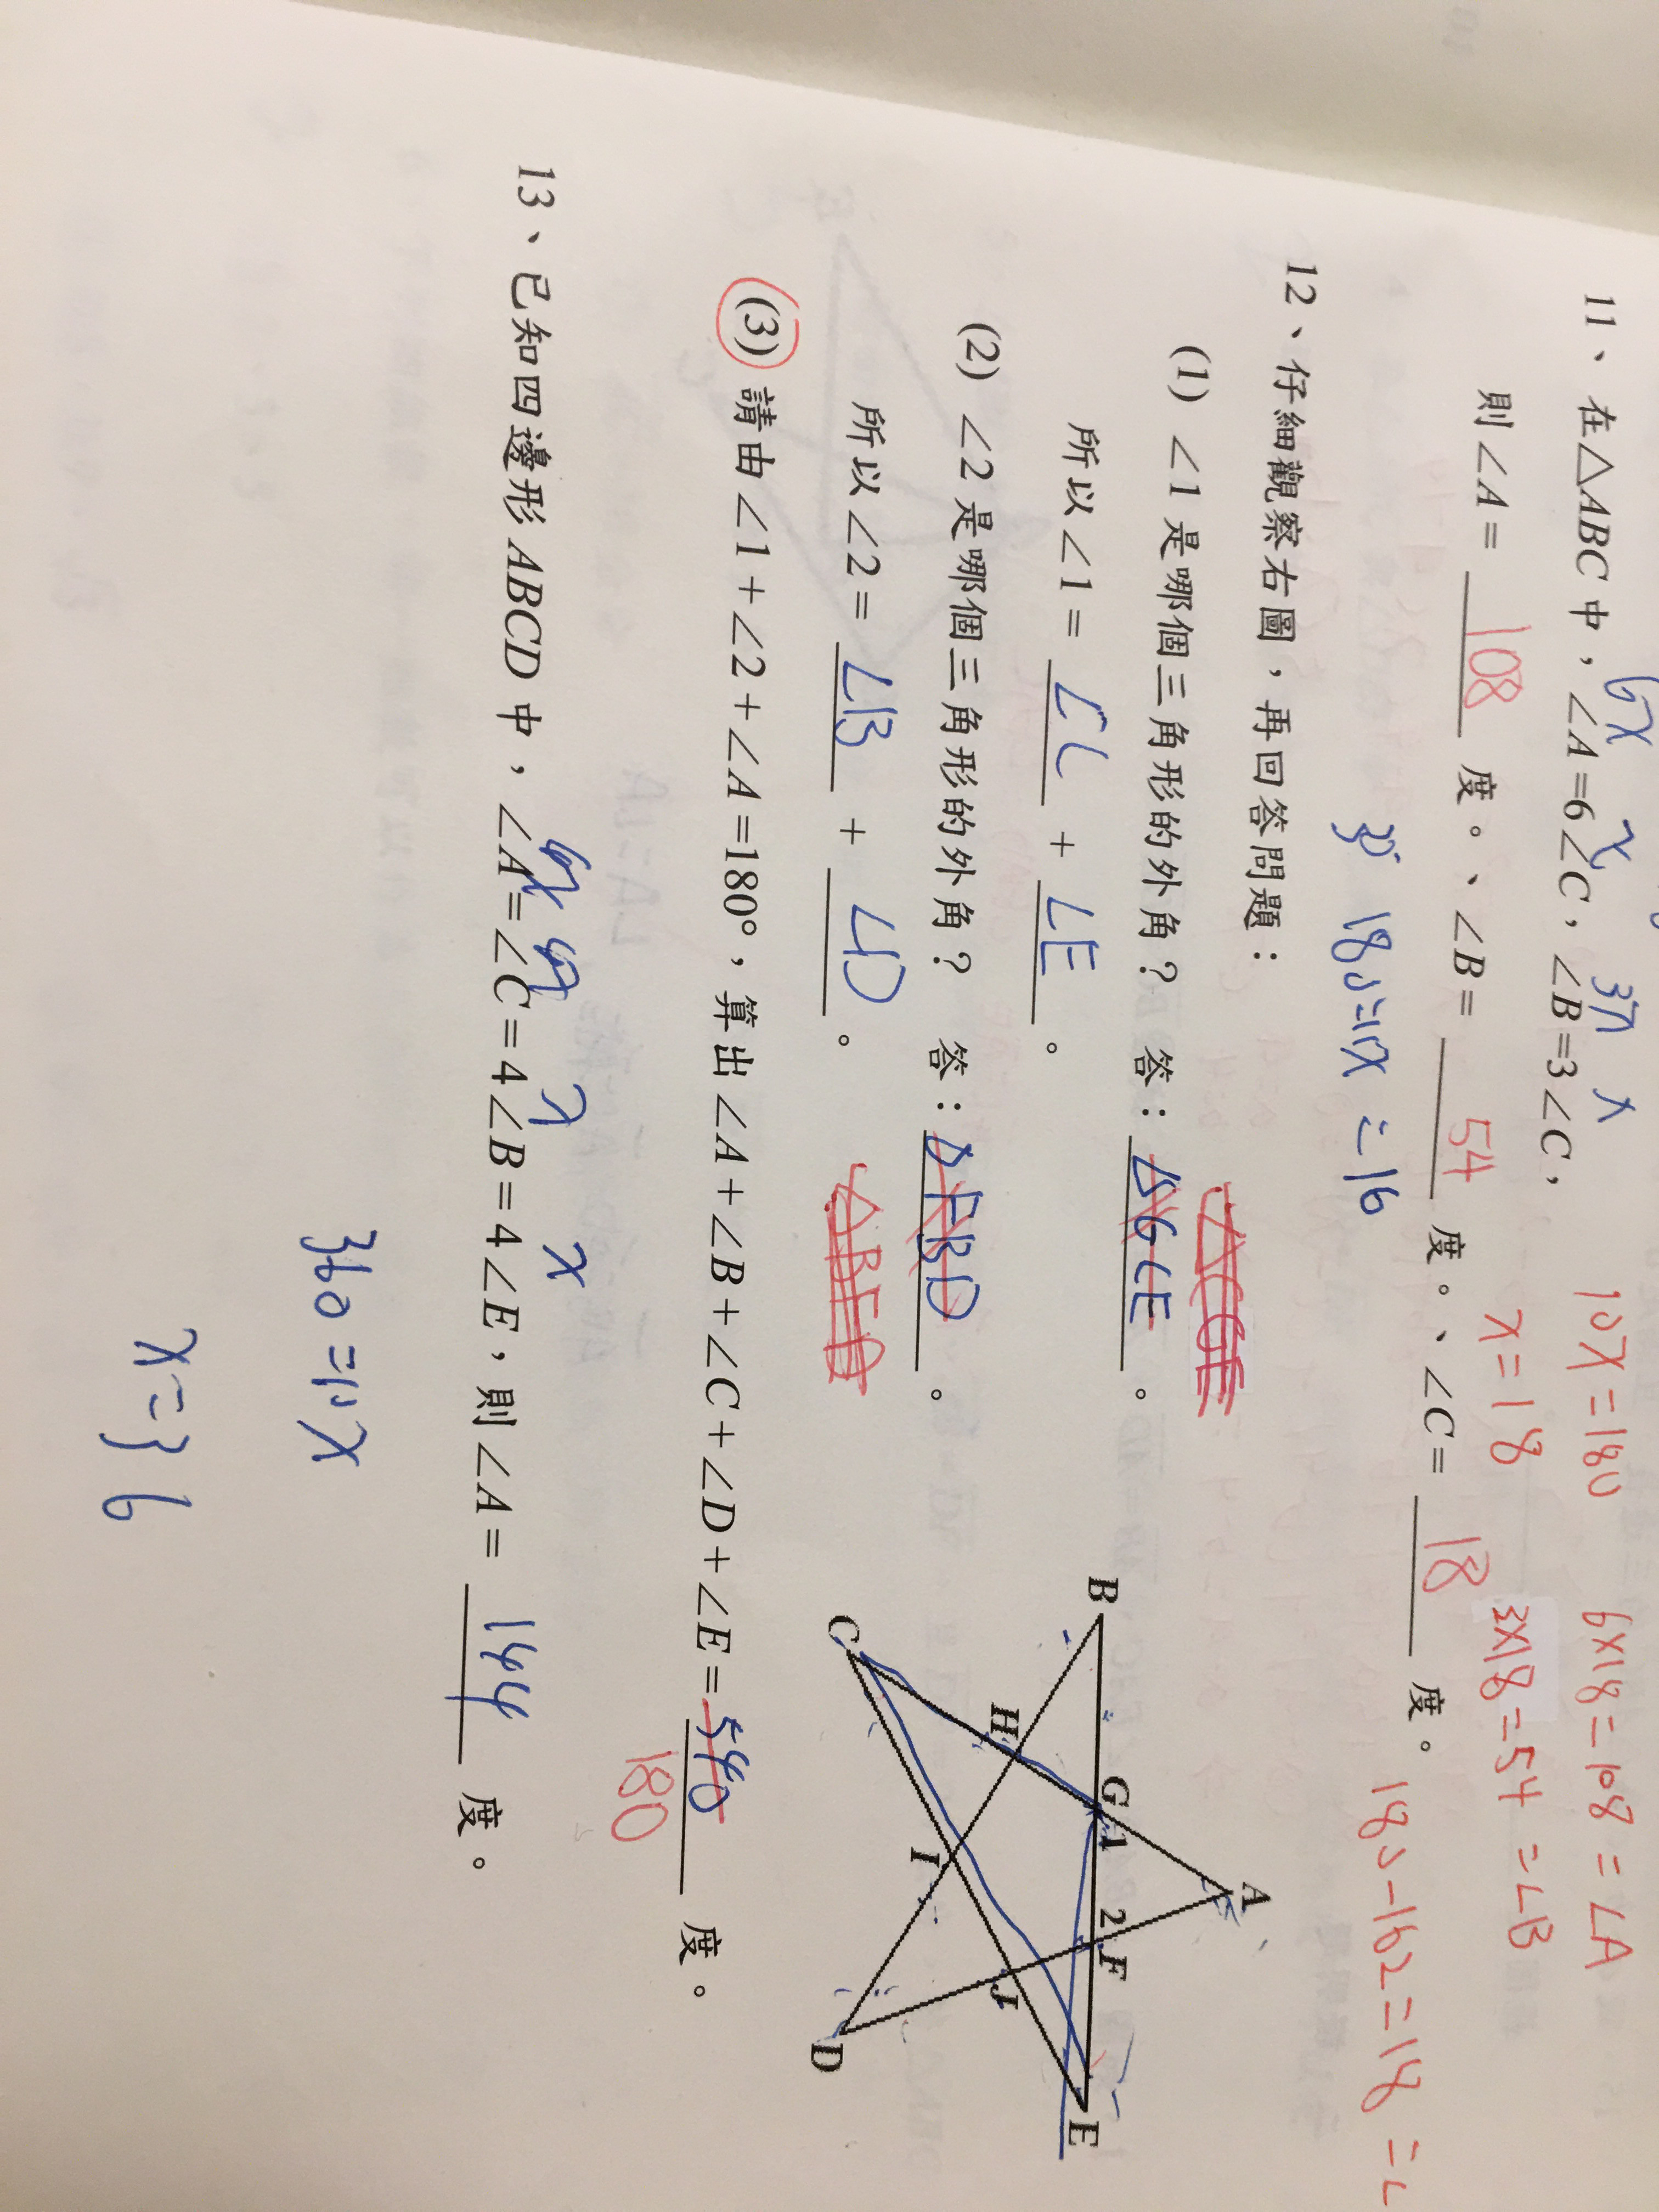 11、在△ABC中，∠A=6∠C，∠B=3∠C，
6x x 3x x
10x=180 6×18=108=∠A
則∠A= 108 度。、∠B= 54 度。、∠C= 18 度。
x=18 3×18=54=∠B
180=11x =16
180-162=18=∠
12、仔細觀察右圖，再回答問題：
(1) ∠1是哪個三角形的外角？ 答：△GCE。
△CGE
所以∠1= ∠C + ∠E。
(2) ∠2是哪個三角形的外角？ 答：△FBD。
所以∠2= ∠B + ∠D。
△BFD
(3) 請由∠1+∠2+∠A=180°，算出∠A+∠B+∠C+∠D+∠E= 540 度。
180
A
B G 1 2 F E
H J
I
C D
13、已知四邊形ABCD中，∠A=∠C=4∠B=4∠E，則∠A= 144 度。
4x 4x x x
360=10x
x=36